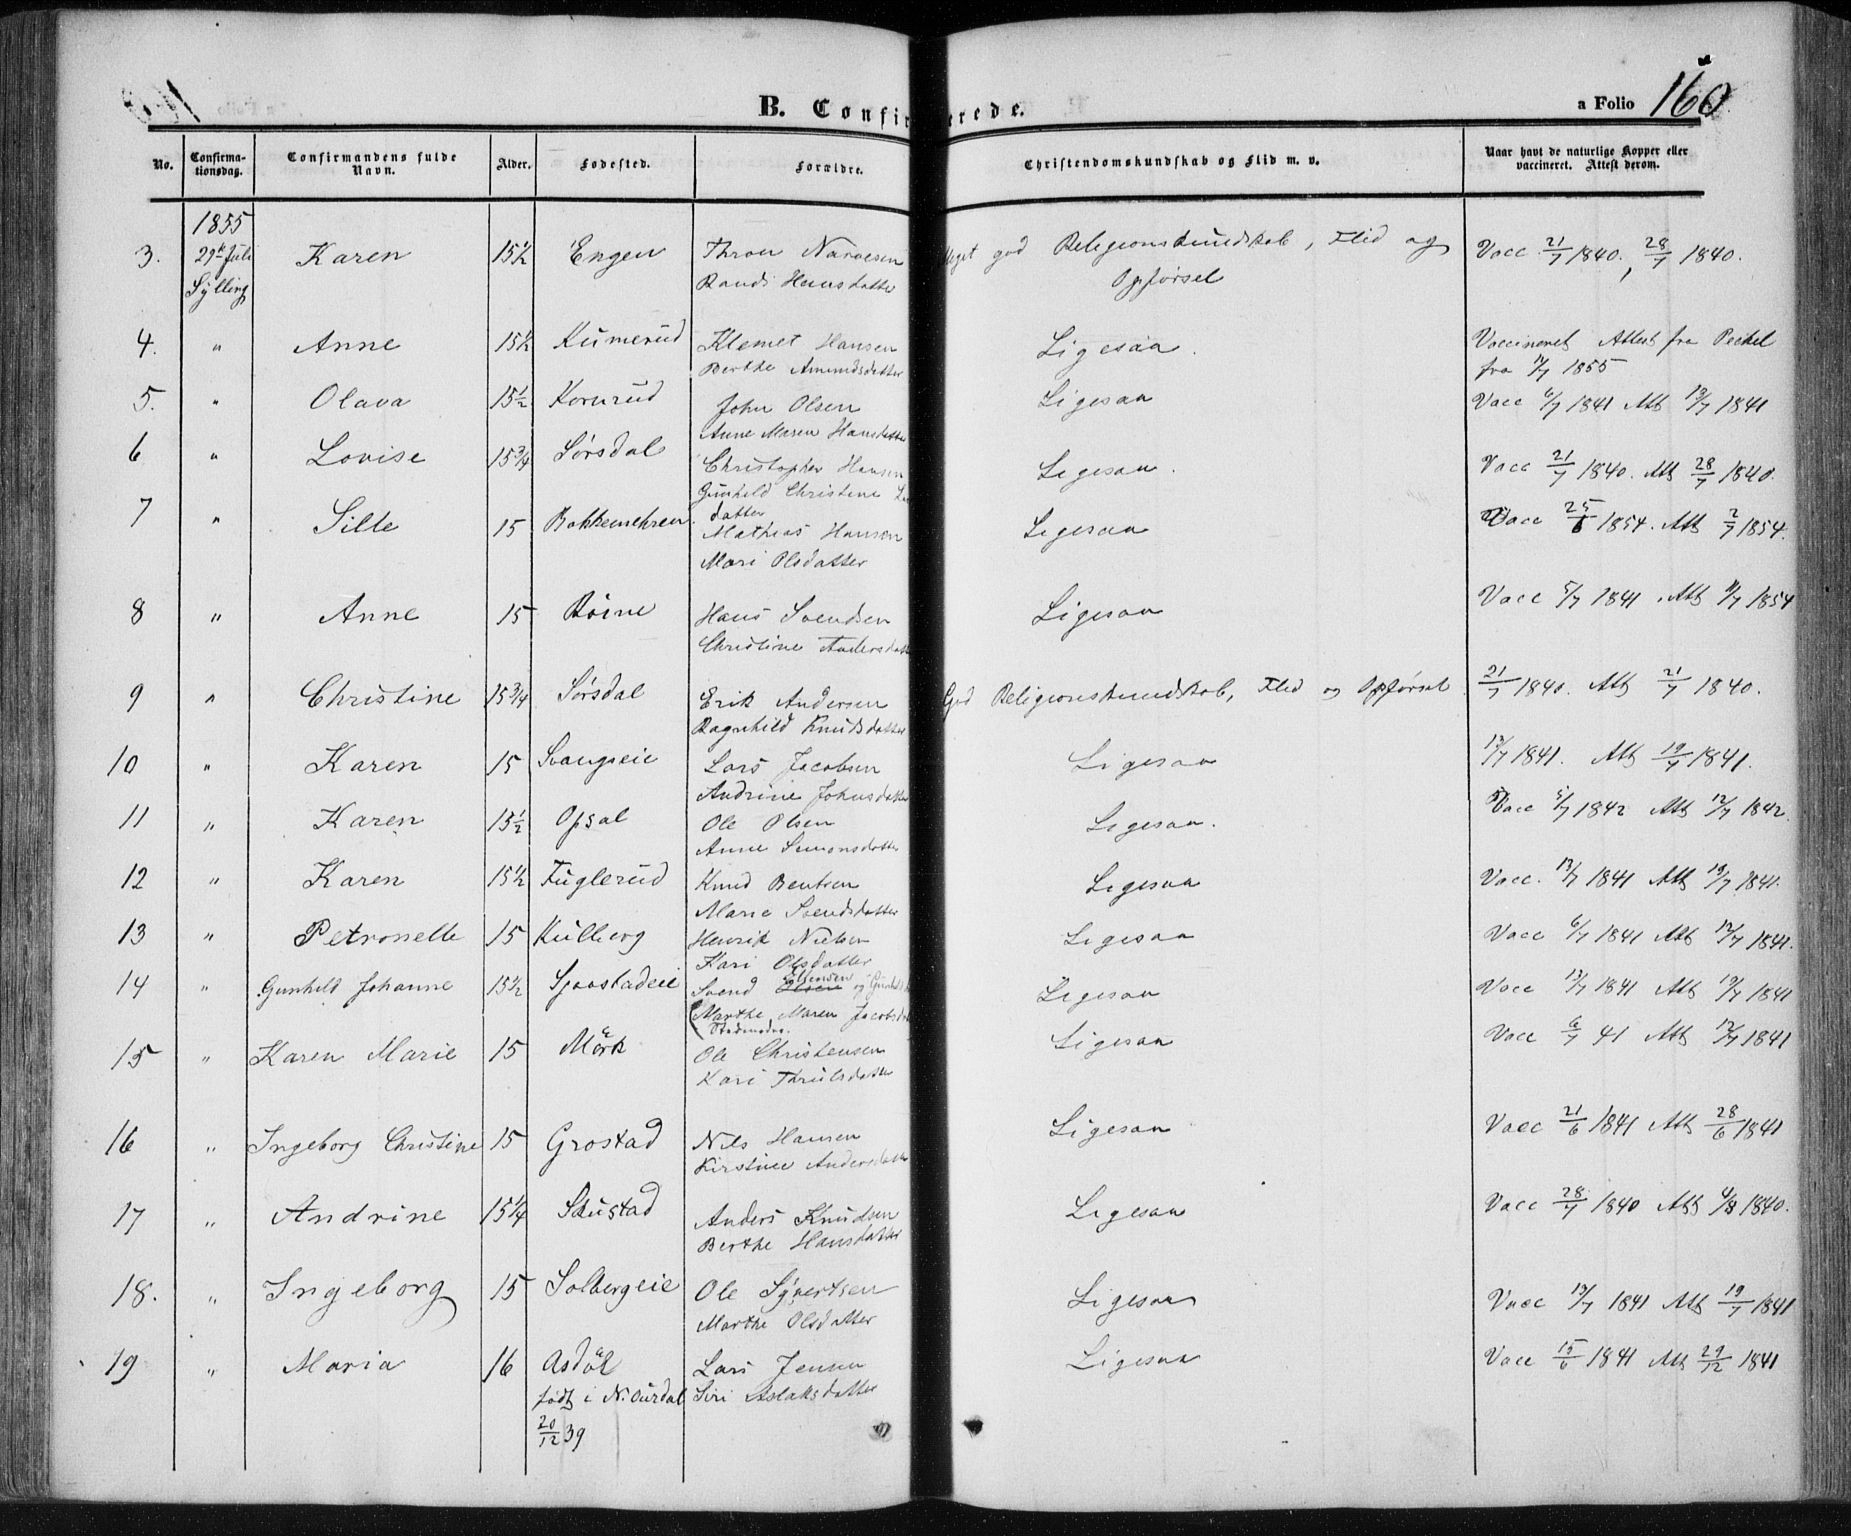 B. Confirmerede.
a Folio 160
No. Confirma-tionsdag. Confirmandens fulde Navn. Alder. Fødested. Forældre. Christendomskundskab og Flid m. v. Naar havt de naturlige Kopper eller vaccineret. Attest derom.
1855
3. 29de Juli Karen 15½ Engen Thron Narvesen Meget god Religionskundskab, Flid og Vacc. 21/7 1840, 28/7 1840.
Sylling Randi Hansdatter Opførsel
4. " Anne 15½ Kumerud Klemet Hansen Ligesaa. Vaccineret Attest fra
Berthe Amundsdatter fra 1855
5. " Olava 15½ Kornrud John Olsen Ligesaa Vacc 6/7 1841 Att 13/7 1841
Anne Maren Hansdatter
6 " Lovise 15¾ Sørsdal Christopher Hansen Ligesaa. Vacc 21/7 1840. Att 28/7 1840.
Gunhild Christine
datter
7 " Sille 15 Bakkemehren Mathias Hansen Ligesaa Vacc 25/6 1854. Att 2/7 1854.
Mari Olsdatter
8 " Anne 15 Røine Hans Svendsen Ligesaa Vacc 5/7 1841. Att 1854
Christine Andersdatter
9 " Christine 15¾ Sørsdal Erik Andersen God Religionskundskab, Flid og Opførsel 21/7 1840. Att 21/7 1840.
Ragnhild Knudsdatter
10 " Karen 15 Svangseie Lars Jacobsen Ligesaa 13/7 1841. Att 19/7 1841.
Andrine Johnsdatter
11 " Karen 15½ Opsal Ole Olsen Ligesaa. Vacc 5/7 1842 Att 12/7 1842.
Anne Simonsdatter
12 " Karen 15½ Fuglerud Knud Bentsen Ligesaa Vacc. 13/7 1841 Att 19/7 1841.
Marie Svendsdatter
13 " Petronelle 15 Kulberg Henrik Nielsen Ligesaa Vacc 6/7 1841 Att 12/7 1841.
Kari Olsdatter
14 " Gunhild Johanne 15½ Sjaastadeie Svend Ellensen og Ligesaa Vacc 13/7 1841 Att 19/7 1841
(Marthe Maren Jacobsdatter
Stedmoder.
15 " Karen Marie 15 Mörk Ole Christensen Ligesaa Vacc 6/7 41 Att 12/7 1841
Kari Thrulsdatter
16 " Ingeborg Christine 15 Grostad Nils Hansen Ligesaa Vacc 21/6 1841 Att 28/6 1841
Kirstine Andersdatter
17 " Andrine 15¼ Skustad Anders Knudsen Ligesaa Vacc 28/7 1840 Att 4/8 1840.
Berthe Hansdatter
18. " Ingeborg 15 Solbergeie Ole Syvertsen Ligesaa Vacc 13/7 1841 Att 19/7 1841
Marthe Olsdatter
19 " Maria 16 Asdöl Lars Jensen Ligesaa Vacc 15/6 1841 Att 29/12 1841
født i N. Aurdal Siri Aslaksdatter
20/12 39